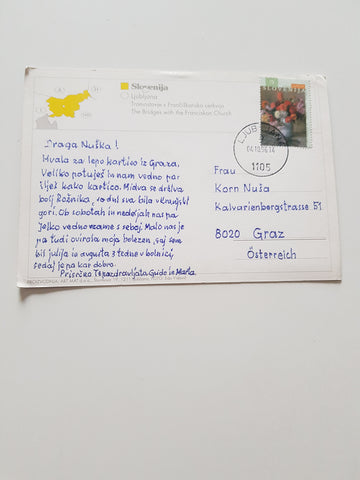 Slovenija
Ljubljana
Tromostovje s Frančiškansko cerkvijo
The Bridges with the Franciscan Church
(A)
(H)
(I)
(HR)
SLOVENIJA
LJUBLJANA
04.10.96-14
1105
Draga Nuška!
Hvala za lepo kartico iz Graza.
Veliko potuješ in nam vedno pošlješ kako kartico. Midva se drživa
bolj Rožnika, 10 dni sva bila v Kranjski
gori. Ob sobotah in nedeljah nas pa
Jelko vedno vzame s seboj. Malo nas je
pa tudi ovirala moja bolezen, saj sem
bil julija in avgusta 3 tedne v bolnici,
sedaj je pa kar dobro.
Prisrčno Te pozdravljata Guido in Marta
Frau
Korn Nuša
Kalvarienbergstrasse 51
8020 Graz
Österreich